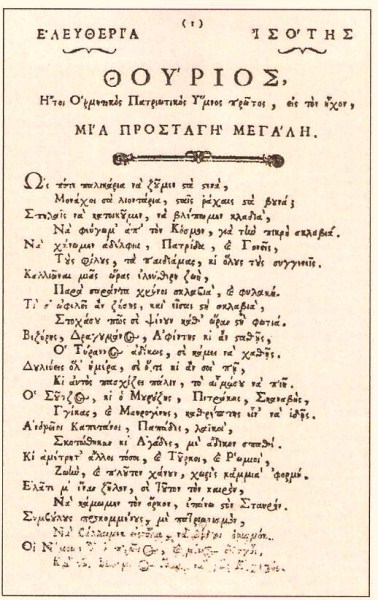 (1)
ΕΛΕΥΘΕΡΙΑ ἸΣΟΤΗΣ
ΘΟΥΡΙΟΣ,
Ἤτοι Ὁρμητικὸς Πατριωτικὸς Ὕμνος πρῶτος, εἰς τὸν ἦχον,
ΜΙΑ ΠΡΟΣΤΑΓΗ ΜΕΓΑΛΗ.
Ὡς πότε παλικάρια νὰ ζῶμεν στὰ στενὰ,
Μονάχοι σὰ λιοντάρια, σταῖς ράχαις στὰ βουνά;
Σπηλαῖς νὰ κατοικοῦμεν, νὰ βλέπωμεν κλαδιά,
Νὰ φεύγωμ' ἀπ' τὸν Κόσμον, γιὰ τὴν πικρὴ σκλαβιά.
Νὰ χάνωμεν ἀδέλφια, Πατρίδα, & Γονεῖς,
Τοὺς φίλους, τὰ παιδιάμας, κι ὅλους τοὺς συγγενεῖς.
Καλλιῶναι μιᾶς ὥρας ἐλεύθερη ζωὴ,
Παρὰ σαράντα χρόνοι σκλαβιὰ, & φυλακή.
Τί σ' ὠφελεῖ ἂν ζήσῃς, καὶ εἶσαι στὴ σκλαβιὰ,
Στοχάσου πῶς σὲ ψένουν καθ' ὥραν στὴ φωτιά.
Βεζύρης, Δραγουμάνος, Ἀφέντης κι ἂν σταθῇς,
Ὁ Τύραννος ἀδίκως, σὲ κάμει νὰ χαθῇς.
Δουλεύεις ὅλ' ἡμέρα, σὲ ὅ,τι κι ἂν σοὶ 'πῇ,
Κι αὐτὸς πασχίζει πάλιν, τὸ αἷμάσου νὰ πιῇ.
Ὁ Σοῦτζος, κι ὁ Μουρούζης, Πετράκης, Σκαναβῆς,
Γγίκας, & Μαυρογένης, καθρέπτης εἶν' νὰ ἰδῇς.
Ἀνδρεῖοι Καπιτάνοι, Παπάδες, λαϊκοὶ,
Σκοτώθηκαν κι Ἀγάδες, μὲ ἄδικον σπαθί.
Κι ἀμέτρητ' ἄλλοι τόσοι, & Τοῦρκοι, & Ῥωμιοὶ,
Ζωὴν, & πλοῦτον χάνουν, χωρὶς κἀμμιὰ 'φορμή.
Ἐλᾶτε μ' ἕναν ζῆλον, σὲ τοῦτον τὸν καιρὸν,
Νὰ κάμωμεν τὸν ὅρκον, ἐπάνω στὸν Σταυρόν.
Συμβούλους προκομμένους, μὲ πατριωτισμὸν,
Νὰ βάλλωμεν